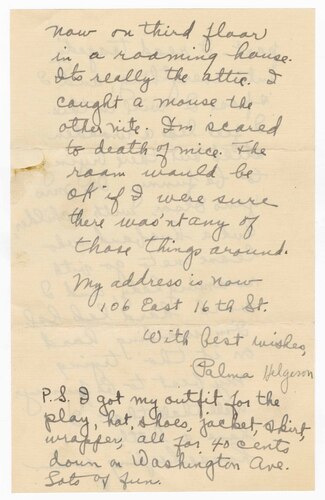 now on third floor
in a roaming house.
Its really the attic. I
caught a mouse the
other nite. I'm scared
to death of mice. The
room would be
OK if I were sure
there was'nt any of
those things around.
My address is now
106 East 16th St.
With best wishes,
Palma Helgeson
P.S. I got my outfit for the
play, hat, shoes, jacket, skirt,
wrapper, all for 40 cents
down on Washington Ave.
Lots of fun.